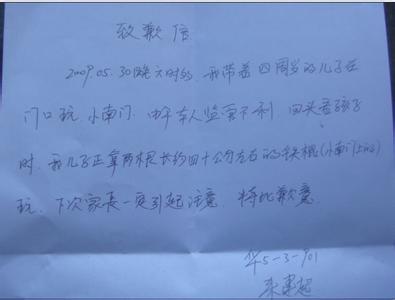 致歉信
2009.05.30晚六时许，我带着四周岁的儿子在
门口玩，小南门，由于本人监管不利，回头看孩子
时，我儿子正拿两根长约四十公分左右的铁棍(小南门上的)
玩，下次家长一定引起注意，特此歉意
华5-3-901